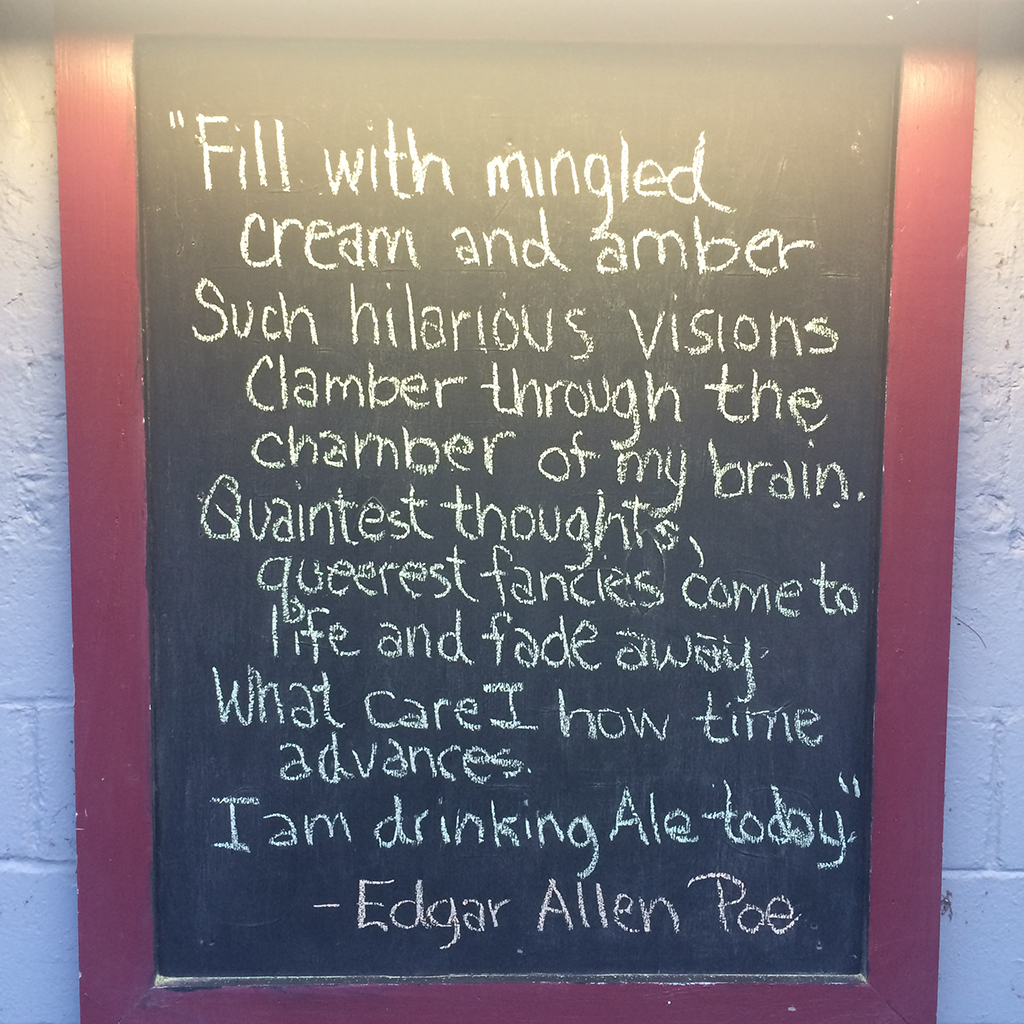 "Fill with mingled
cream and amber
Such hilarious visions
Clamber through the
chamber of my brain.
Quaintest thoughts,
queerest fancies come to
life and fade away.
What care I how time
advances.
I am drinking Ale today"
- Edgar Allen Poe